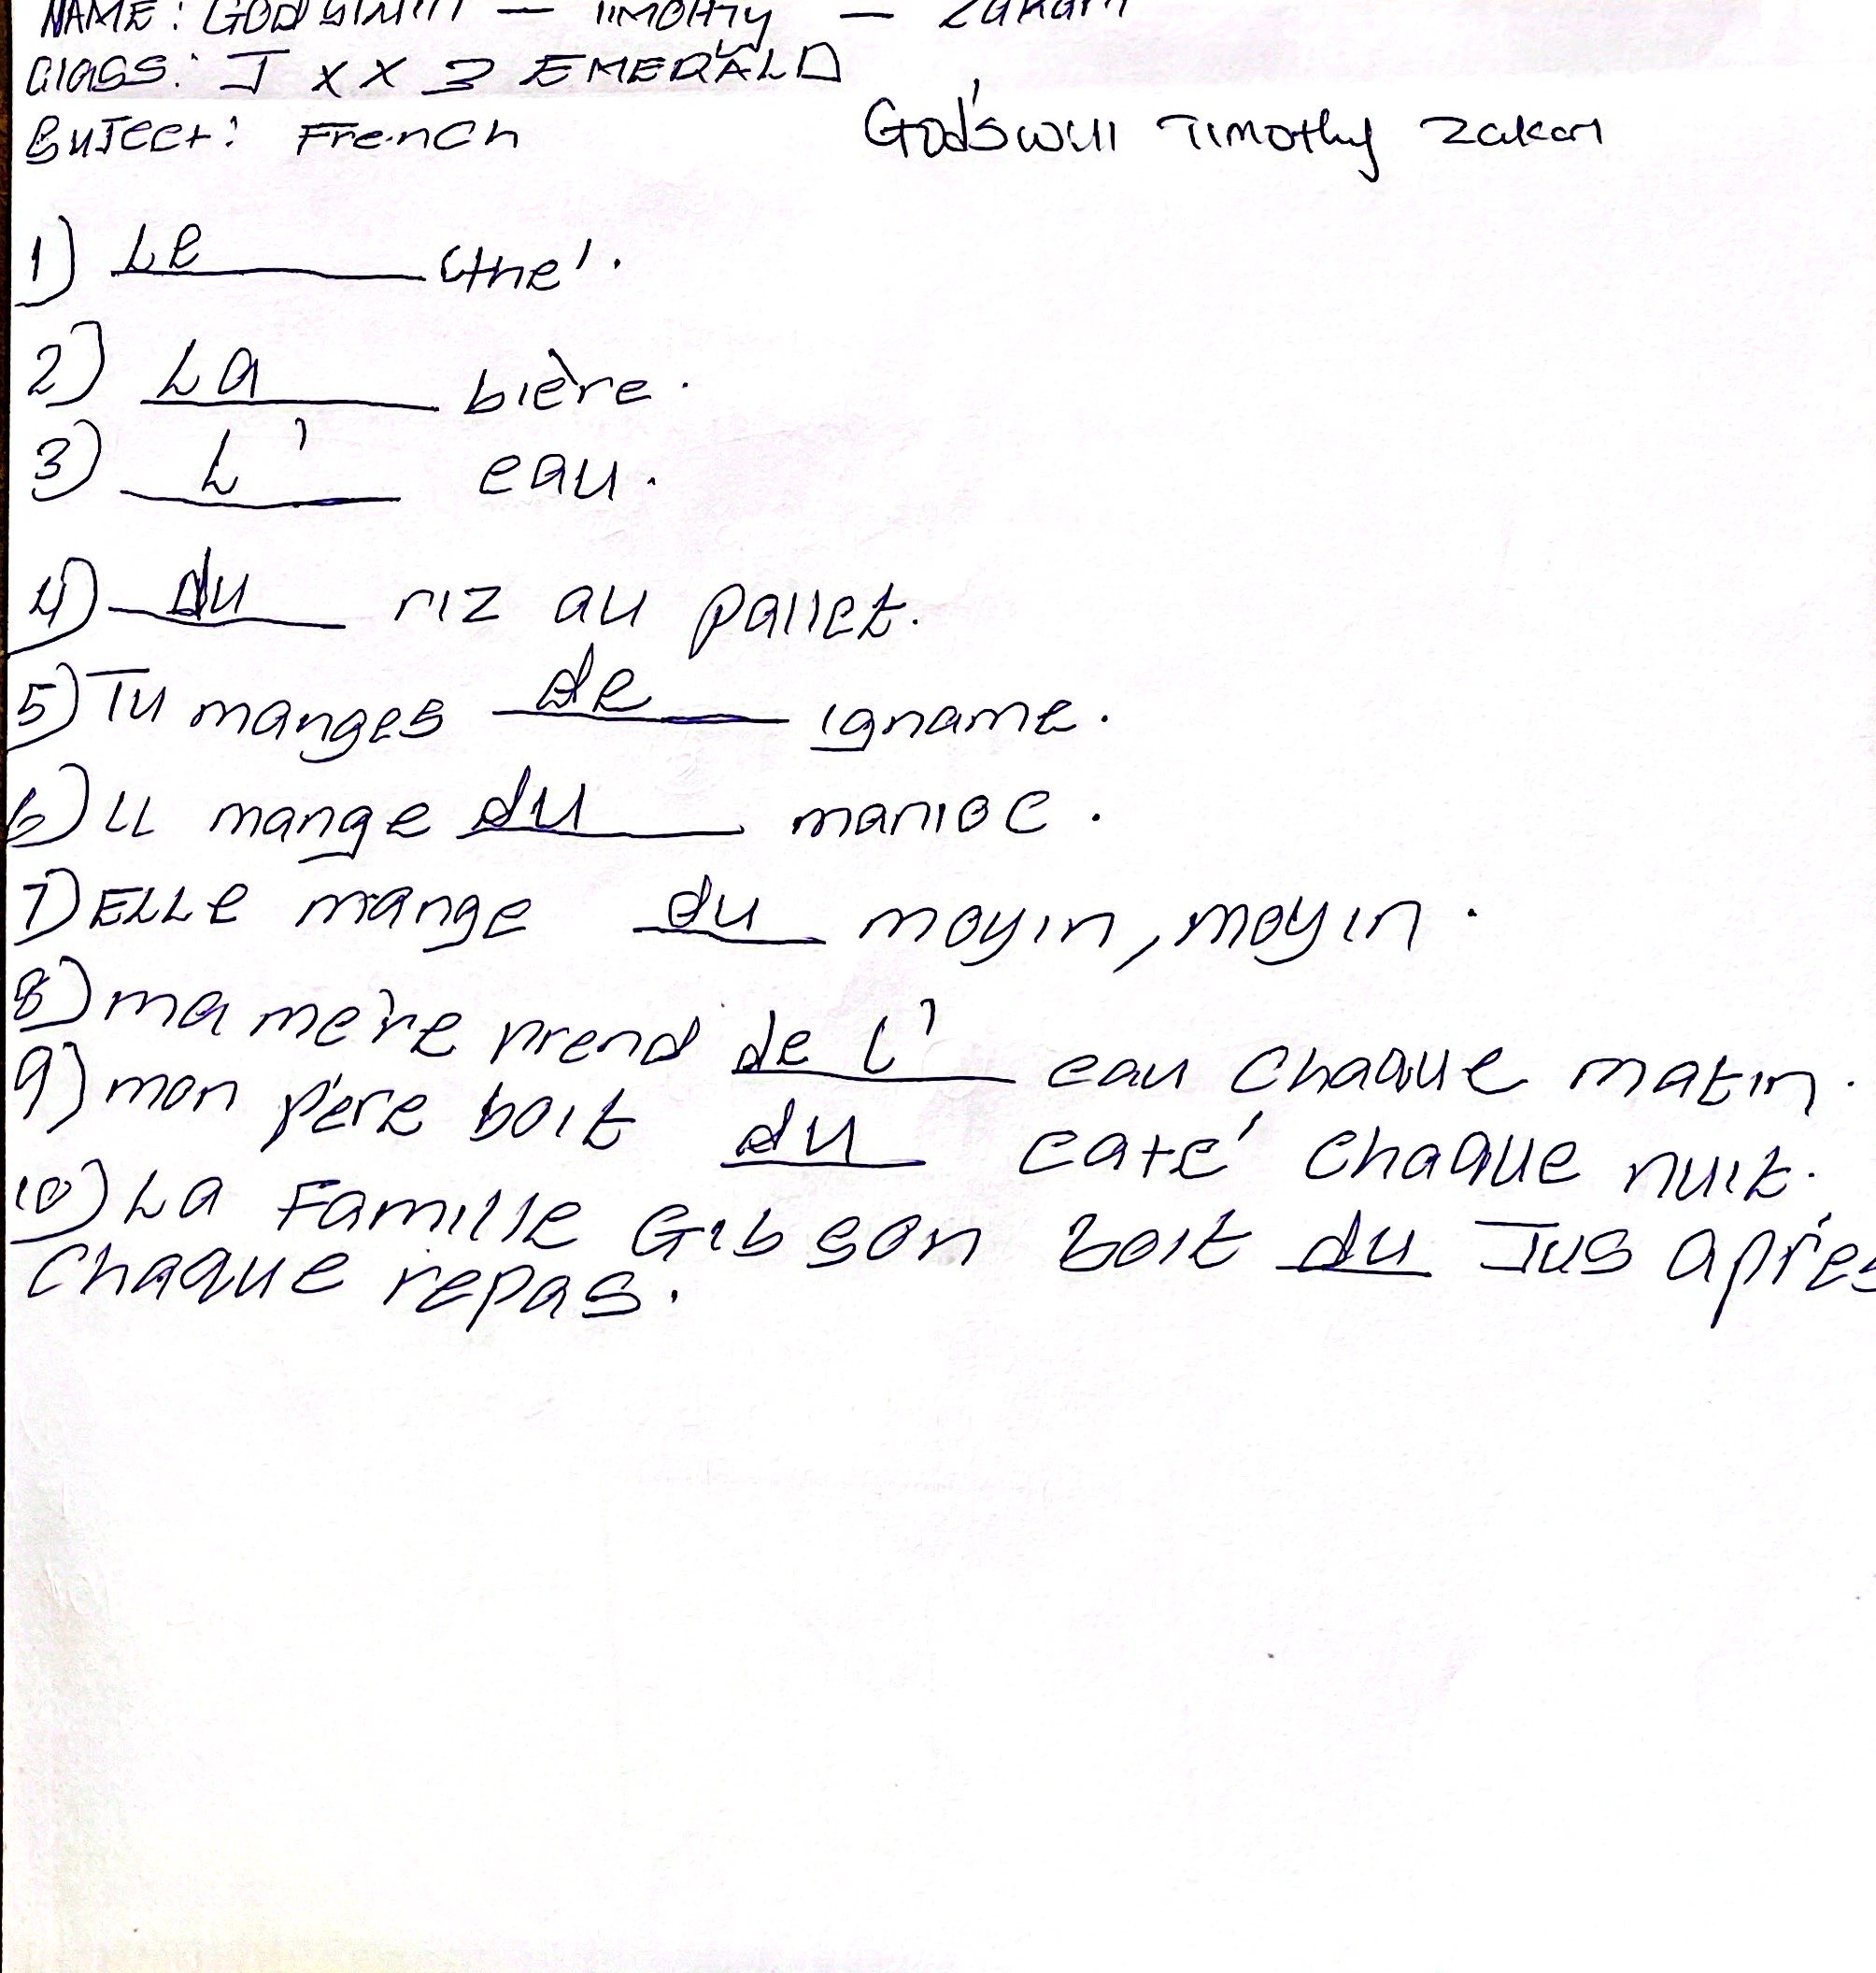 NAME: GOD'SWILL - TIMOTHY - Zakari
Class: J X X 3 EMERALD
SuJect: French
God'swill Timothy Zakari
1) Le the'.
2) La bière.
3) L' eau.
4) du riz au pallet.
5) Tu manges de igname.
6) LL mange du manioc.
7) ELLe mange du moyin, moyin.
8) ma mère prend de l' eau chaque matin.
9) mon père boit du caté chaque nuit.
10) La Famille Gibson boit du Jus après
chaque repas.